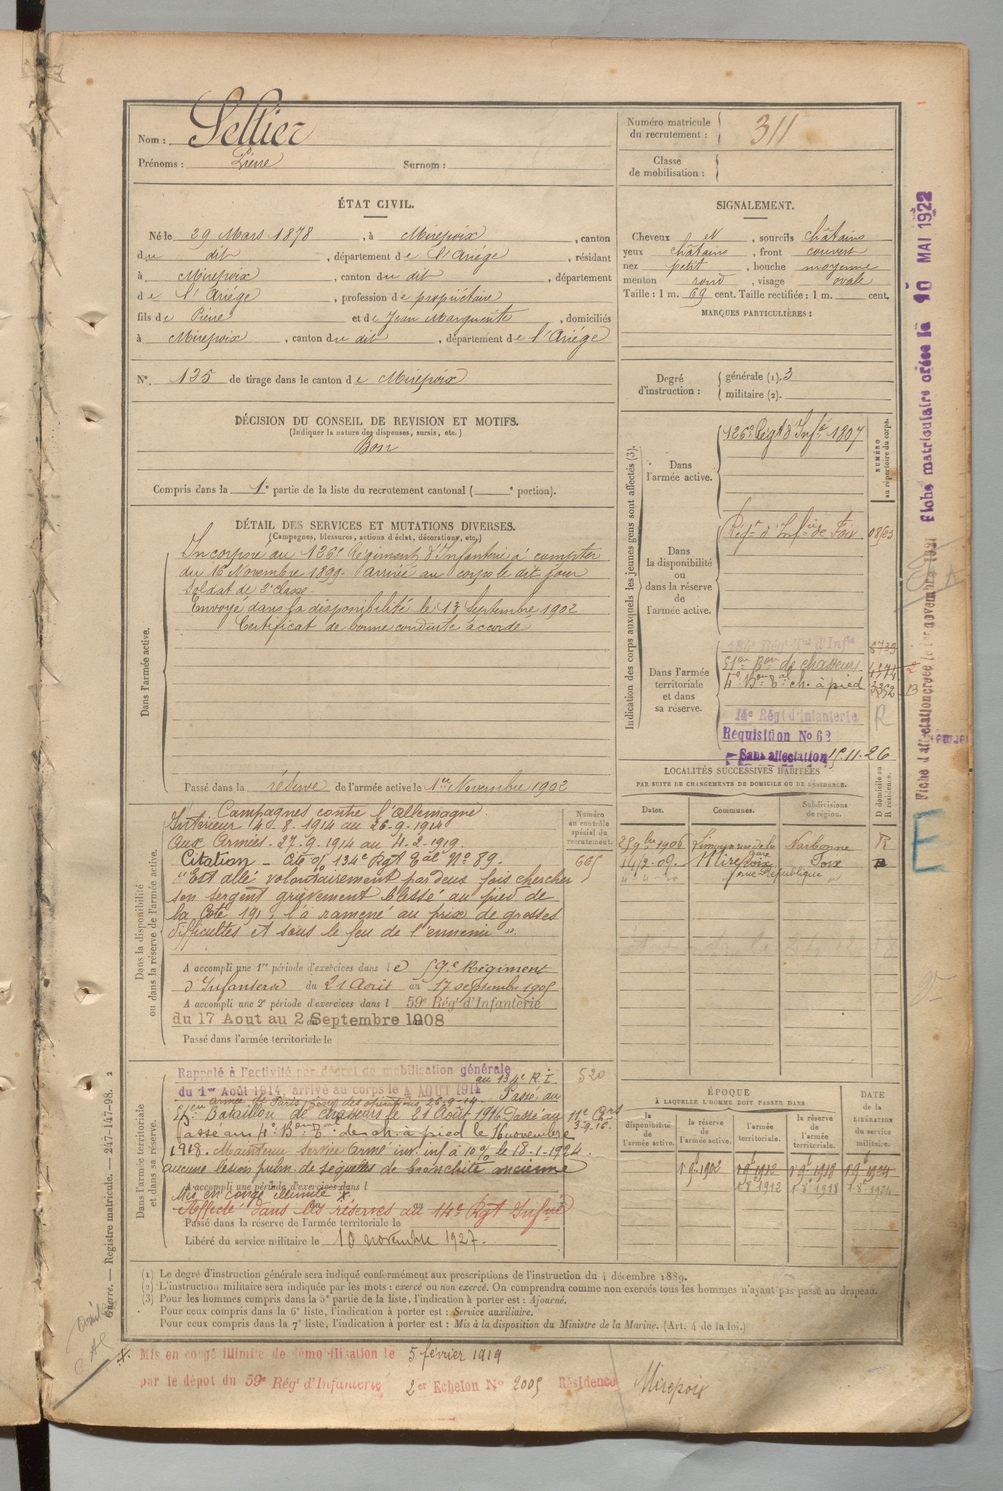 Nom : Sellier
Prénoms : Pierre Surnom :
Numéro matricule
du recrutement : 311
Classe
de mobilisation :
ÉTAT CIVIL.
Né le 29 Mars 1878, à Mirepoix, canton
du dit, département de l'Ariége, résidant
à Mirepoix, canton du dit, département
de l'Ariége, profession de propriétaire
fils de Pierre et de Jean Marguerite, domiciliés
à Mirepoix, canton du dit, département de l'Ariége
N°. 135 de tirage dans le canton de Mirepoix
SIGNALEMENT.
Cheveux N, sourcils châtains
yeux châtains, front couvert
nez petit, bouche moyenne
menton rond, visage ovale
Taille : 1 m. 69 cent. Taille rectifiée : 1 m. cent.
MARQUES PARTICULIÈRES :
Degré
d'instruction :
générale (1). 3
militaire (2).
DÉCISION DU CONSEIL DE REVISION ET MOTIFS.
(Indiquer la nature des dispenses, sursis, etc.)
Bon
Compris dans la 1e partie de la liste du recrutement cantonal ( e portion).
DÉTAIL DES SERVICES ET MUTATIONS DIVERSES.
(Campagnes, blessures, actions d'éclat, décorations, etc.)
Dans l'armée active.
Incorporé au 126e Régiment d'Infanterie à compter
du 16 Novembre 1899. Arrivé au corps le dit jour
Soldat de 2e classe
Envoyé dans la disponibilité le 13 Septembre 1902
Certificat de bonne conduite accordé
Passé dans la réserve de l'armée active le 1er Novembre 1902
Indication des corps auxquels les jeunes gens sont affectés (3).
NUMÉRO
au répertoire du corps.
Dans
l'armée active.
126e Régt d'Infie 1807
Dans
la disponibilité
ou
dans la réserve
de
l'armée active.
Régt d'Infie de Foix 0863
Dans l'armée
territoriale
et dans
sa réserve.
51er Bon de chasseurs 4374
4e Bon Tal ch. à pied 3352
14e Régt d'Infanterie R
Réquisition No 62
Sans affectation 15.11.26
LOCALITÉS SUCCESSIVES HABITÉES
PAR SUITE DE CHANGEMENTS DE DOMICILE OU DE RÉSIDENCE.
D domicile ou
R résidence.
Dates. Communes. Subdivisions
de région.
25 9bre 1906 Limoux Narbonne R
14/2-09. Mirepoix Foix
rue République
Dans la disponibilité
ou dans la réserve de l'armée active.
Numéro
au contrôle
spécial du
recrutement.
605
Campagnes contre l'Allemagne
Intérieur 4.8.1914 au 26-9-1914
Aux Armées. 27.9.1914 au 4.2.1919.
Citation - Cité O/ 134e Rgt Gal No 89.
"Est allé volontairement par deux fois chercher
son sergent grièvement blessé au pied de
la Cote 191, l'a ramené au prix de grosses
difficultés et sous le feu de l'ennemi".
A accompli une 1re période d'exercices dans le 59e Régiment
d'Infanterie du 21 Août au 17 septembre 1905
A accompli une 2e période d'exercices dans l 59e Régt d'Infanterie
du 17 Aout au 2 Septembre 1908
Passé dans l'armée territoriale le
Dans l'armée territoriale
et dans sa réserve.
Rappelé à l'activité par décret de mobilisation générale
du 1er Août 1914, arrivé au corps le 4 AOUT 1914 au 134e R.I. 520
Passé au
51er Bataillon de chasseurs le 21 Août 1916
Passé au 4e Bon Tal de ch. à pied le 16 novembre
1918. Maintenu service armé inv. inf à 10% le 18-1-1924.
aucune lésion pulm. de séquelles de bronchite ancienne
A accompli une période d'exercices dans l
Mis en congé illimité X.
Affecté dans les réserves au 14e Rgt Infrie
Passé dans la réserve de l'armée territoriale le
Libéré du service militaire le 10 novembre 1927.
ÉPOQUE
À LAQUELLE L'HOMME DOIT PASSER DANS
la
disponibilité
de
l'armée active.
la réserve
de
l'armée active.
l'armée
territoriale.
la réserve
de
l'armée
territoriale.
DATE
de la
LIBÉRATION
du service
militaire.
1 9e 1902 1 9e 1912 1 9e 1918 1 9e 1924
1 8e 1912 1 8e 1918 1 8e 1924
(1) Le degré d'instruction générale sera indiqué conformément aux prescriptions de l'instruction du 4 décembre 1889.
(2) L'instruction militaire sera indiquée par les mots : exercé ou non exercé. On comprendra comme non exercés tous les hommes n'ayant pas passé au drapeau.
(3) Pour les hommes compris dans la 5e partie de la liste, l'indication à porter est : Ajourné.
Pour ceux compris dans la 6e liste, l'indication à porter est : Service auxiliaire.
Pour ceux compris dans la 7e liste, l'indication à porter est : Mis à la disposition du Ministre de la Marine. (Art. 4 de la loi.)
X. Mis en congé illimité de démobilisation le 5 février 1919
par le dépôt du 59e Rég' d'Infanterie 2er Echelon No 2005 Résidence Mirepoix
Guerre. — Registre matricule. — 247-147-98. 2
Fiche d'affectation créée le 1er novembre 1921
Fiche matriculaire créée le 10 MAI 1922
E